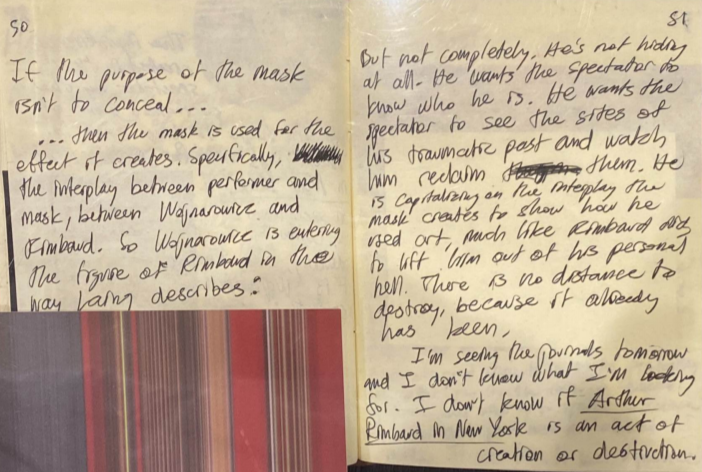 50
If the purpose of the mask
isn't to conceal...
...then the mask is used for the
effect it creates. Specifically,
the interplay between performer and
mask, between Wojnarowicz and
Rimbaud. So Wojnarowicz is entering
the figure of Rimbaud in the
way Laing describes:
51
But not completely. He's not hiding
at all. He wants the spectator to
know who he is. He wants the
spectator to see the sites of
his traumatic past and watch
him reclaim them. He
is capitalizing on the interplay the
mask creates to show how he
used art, much like Rimbaud did,
to lift him out of his personal
hell. There is no distance to
destroy, because it already
has been.
I'm seeing the journals tomorrow
and I don't know what I'm looking
for. I don't know if Arthur
Rimbaud in New York is an act of
creation or destruction.